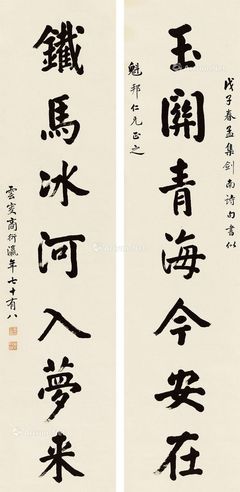 戊子春孟集劍南詩句書似
玉關青海今安在
魁邦仁兄正之
鐵馬冰河入夢来
雲叟商衍瀛年七十有八